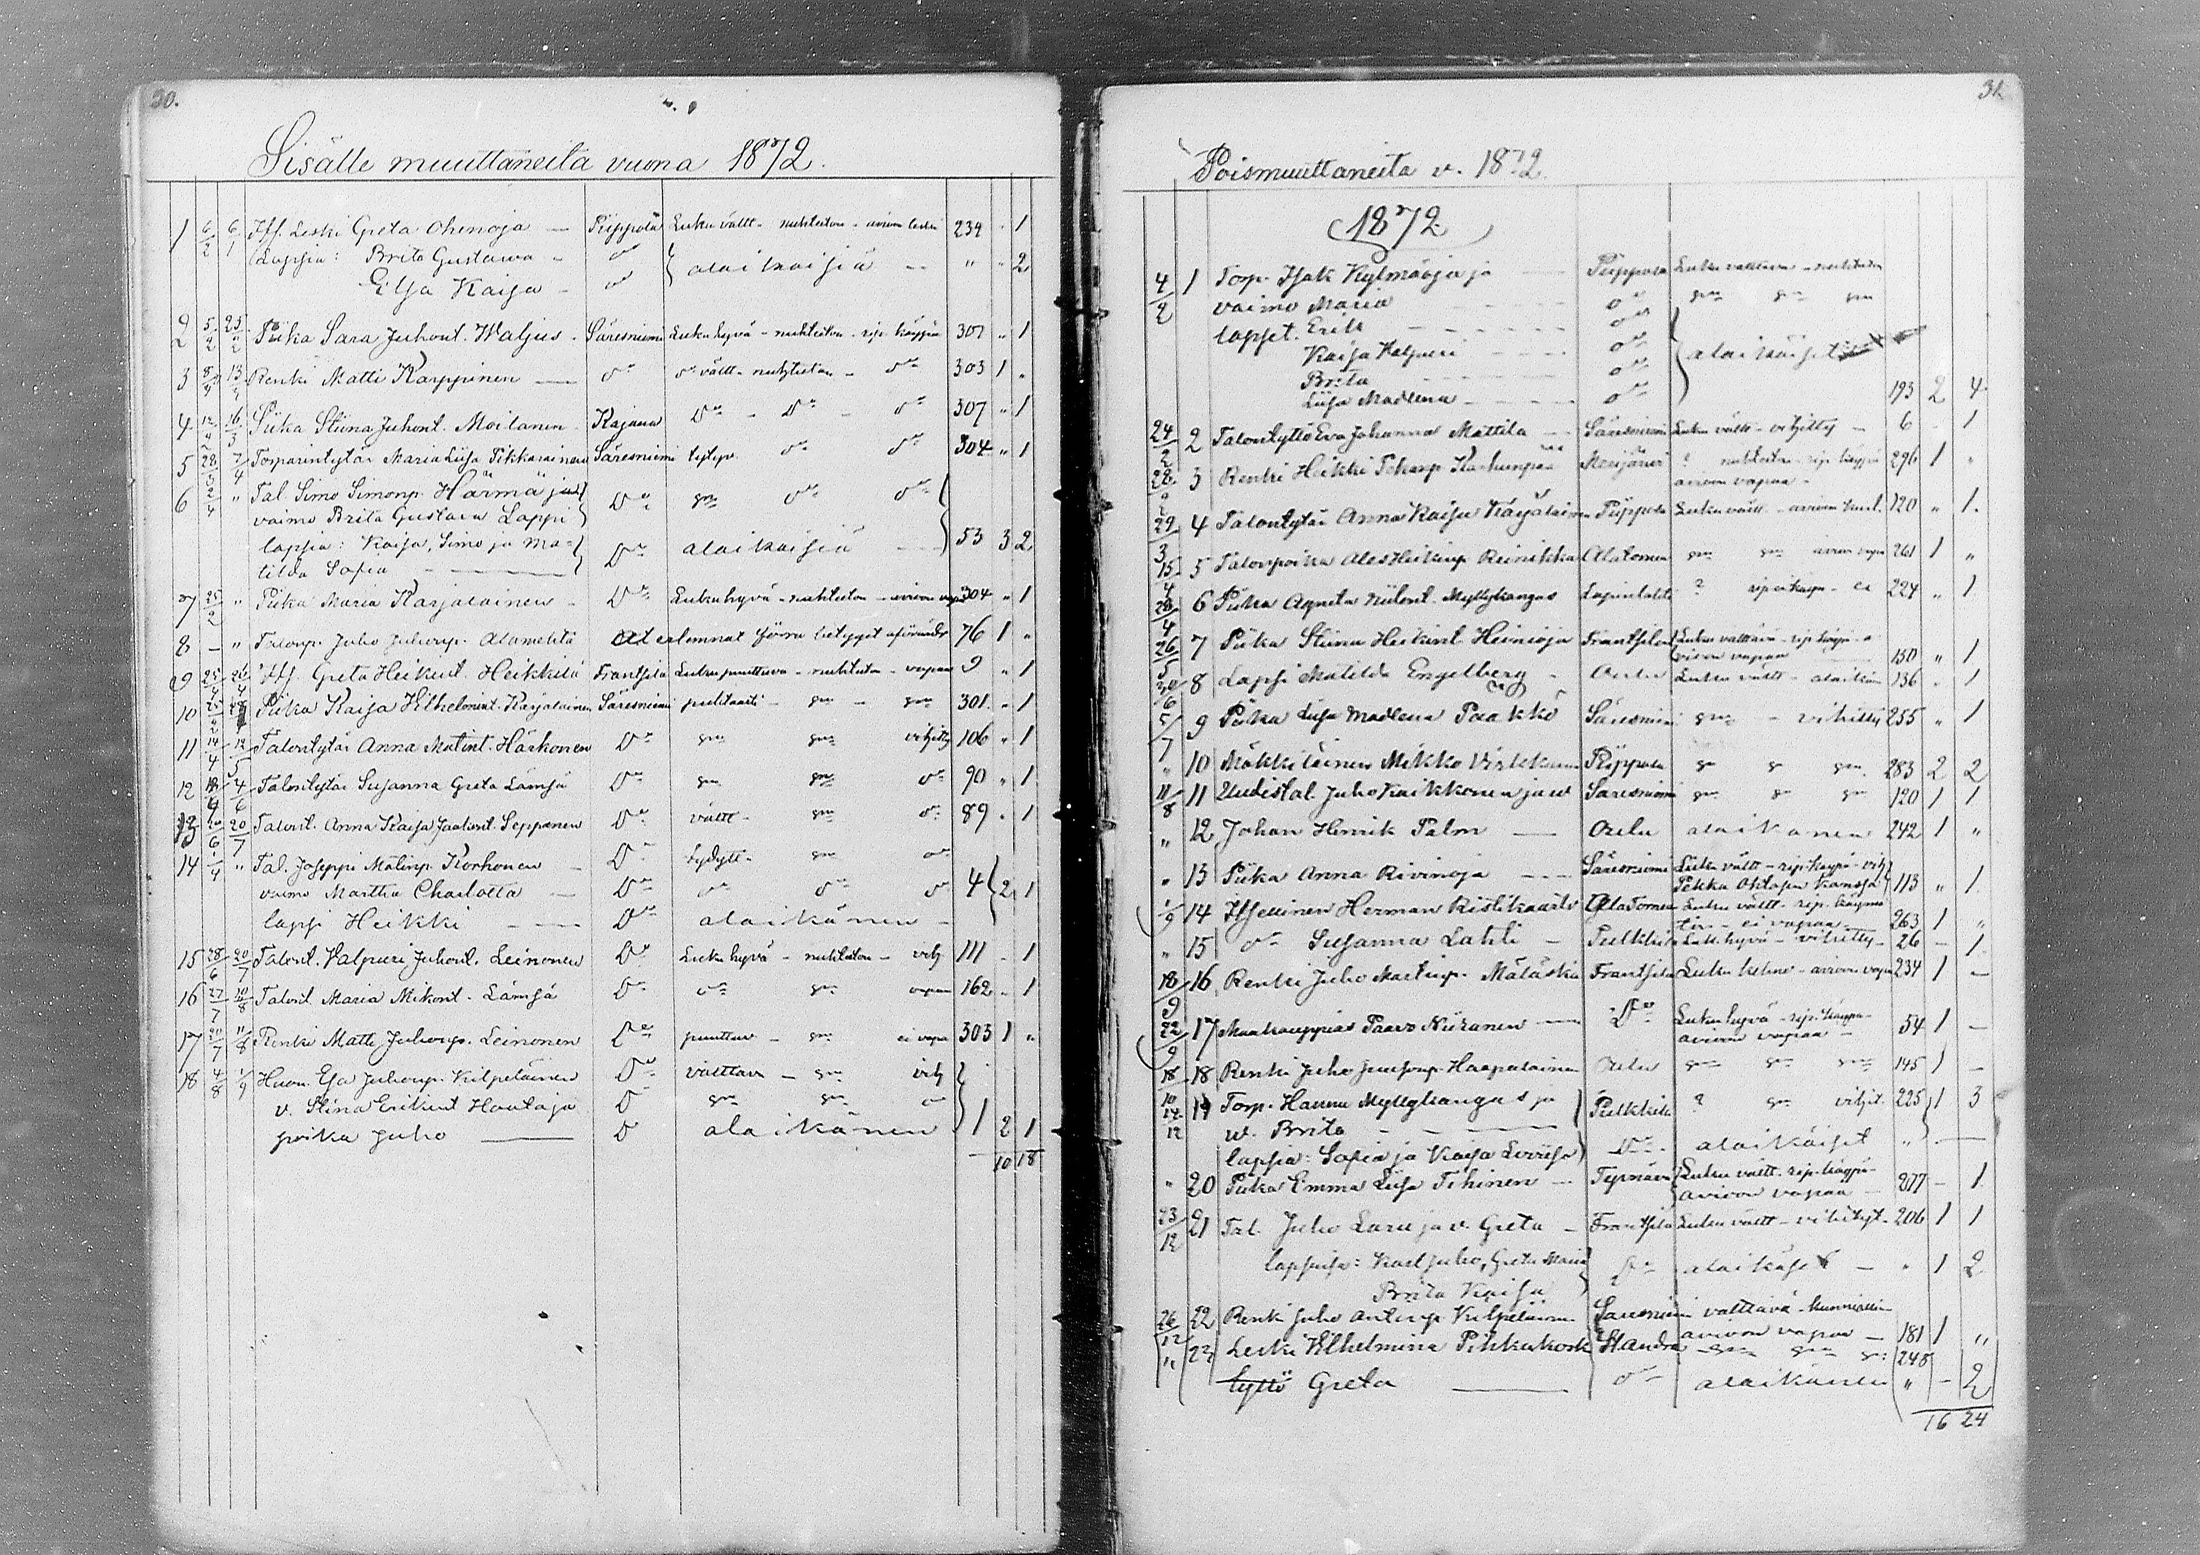 30.
Sisälle muuttaneita vuona 1872.
1 6/2 6/1 Its. Leski Greta Ohenoja — Piippola Luku vältt. nuhteeton - avion leski 234 " 1
Lapsia: Brita Gustava - do } alaikaisiä -- " " 2
Eilsa Kaisa - do
2 5/2 23/2 Piika Sara Juhont. Waljus - Säresniemi Luku hyvä - nuhteeton - rip. käypä 307 " 1
3 Renki Matti Karppinen — do do vältt. nuhteeton - do 303 1 "
4 12/2 16/3 Piika Stiina Juhont. Moilanen Kajana Do - Do - do 307 " 1
5 28/3 7/4 Torparintytär Maria Liisa Pikkarainen Säresniemi tytyv. do do 304 " 1
6 2/4 " Tal. Simo Simonp. Härmä ja Do gm do do
vaimo Brita Gustava Lappi
lapsia: Kaisa, Simo ja Ma- Do alaikaisiä — 53 3 2
tilda Sofia —
7 25/2 " Piika Maria Karjalainen - Do Luku hyvä - nuhteeton - avion vapa 304 " 1
8 - " Talonp. Juho Juhonp. Alamehtä 76 1 "
9 25/4 26/4 Its. Greta Heikint. Heikkilä Frantsila Luku puuttuva - nuhteeton - vapaa 9 " 1
10 Piika Kaisa Wilhelmint. Karjalainen Säresniemi puhtaasti - gm - gm 301 " 1
11 14/4 12/5 Talontytär Anna Matint. Härkönen Do gm gm vihitty 106 " 1
12 4/6 Talontytär Susanna Greta Lämsä Do gm gm do 90 " 1
13 20/6 20/7 Talont. Anna Kaisa Jaakont. Seppänen Do vältt. gm do 89 " 1
14 1/4 " Tal. Joseppi Matinp. Korhonen - Do tydytt. gm do
vaimo Martha Charlotta — Do do do do 4 2 1
lapsi Heikki --- Do alaikänen -
15 28/6 20/7 Talont. Valpuri Juhont. Leinonen Do Luku hyvä - nuhteeton - vih 111 - 1
16 27/7 10/8 Talont. Maria Mikont. Lämsä Do do gm vapaa 162 - 1
17 11/8 Renki Matti Juhonp. Leinonen Do puuttuu - gm ei vapa 303 1 "
18 4/8 1/9 Huon. Esa Juhonp. Kilpeläinen Do välttävä - gm vih
v. Stina Erikint. Hautaja D gm gm do
poika Juho — D alaikänen 1 2 1
10 18
31.
Poismuuttaneita v. 1872.
1872.
4/2 1 Torp. Isak Kylmäoja ja — Piippola Luku välttävä - nuhteeton
vaimo Maria — do gm gm gm
lapset. Erik — do
Kaisa Valpuri — do } alaikäiset
Brita — do
Liisa Madlena — do 193 2 4
24/2 2 Talontyttö Eva Johanna Mattila -- Säresniemi Luku vältt - vihitty - 6 - 1
28/2 3 Renki Heikki Pekanp. Karhunpää ? nuhteeton - rip. käypä 296 1 "
avion vapaa -
29/3 4 Talontytär Anna Kaisa Karjalainen Piippola Luku vältt. - avion 120 " 1.
15/4 5 Talonpoika Ales Heikinp. Reinikka Alatornea gm gm avion vapa 261 1 "
28/4 6 Piika Agneta Niilont. Myllykangas Lapinlahti ? 224 " 1
26/5 7 Piika Stiina Heikint. Heinioja Frantsila Luku välttävä - rip. käypä - a
vion vapaa 150 " 1
8 Lapsi Matilda Engelberg - Oulu Luku vältt - alaikän 136 " 1
5/7 9 Piika Liisa Madlena Paakko Säresniemi gm - vihitty 255 " 1
" 10 Mäkkiläinen Mikko Virkkunen Piippola gm gm gm 283 2 2
11/8 11 Uudistal. Juho Kaikkonen ja w Säresniemi gm gm gm 120 1 1
" 12 Johan Henrik Palm — Oulu alaikänen 242 1 "
" 13 Piika Anna Rivinoja --- Säresniemi Luku vältt - rip. käypä - vih
Pekka Ohtosen kanssa 113 " 1
1/9 14 Itsellinen Herman Ristikaarto Alatornea Luku vältt. rip. käymä
tön - ei vapaa - 263 1 "
" 15 do Susanna Lahti - Pulkkila Luk. hyvä - vihitty - 26 - 1
18/9 16 Renki Juho Martinp. Määttä Frantsila Luku kehno - avion vapa 234 1 —
22/9 17 Maakauppias Paavo Niiranen — Do Luku hyvä - rip. käypä -
avion vapaa - 54 1 —
18/10 18 Renki Juho Juusonp. Haapalainen Oulu gm gm gm 145 1 —
14/12 19 Torp. Hannu Myllykangas ja Pulkkila ? gm vihit. 225 1 3
w. Brita —
lapsia: Sofia ja Kaisa Loviisa Do alaikäiset " —
" 20 Piika Emma Liisa Tihinen — Tyrnävä Luku vältt. rip. käypä -
avion vapaa - 277 - 1
23/12 21 Tal. Juho Laru ja v. Greta — Frantsila Luku vältt - vihityt - 206 1 1
lapsia: Karl Juho, Greta Maria Do alaikäset — " 1 2
Brita Kaisa
26/12 22 Renk. Juho Antinp. Kilpeläinen Säresniemi välttävä - kunniallin
avion vapaa — 181 1 "
" 23 Leski Wilhelmina Pihkakoski gm gm gm 248
tyttö Greta — do alaikänen " - 2
16 24